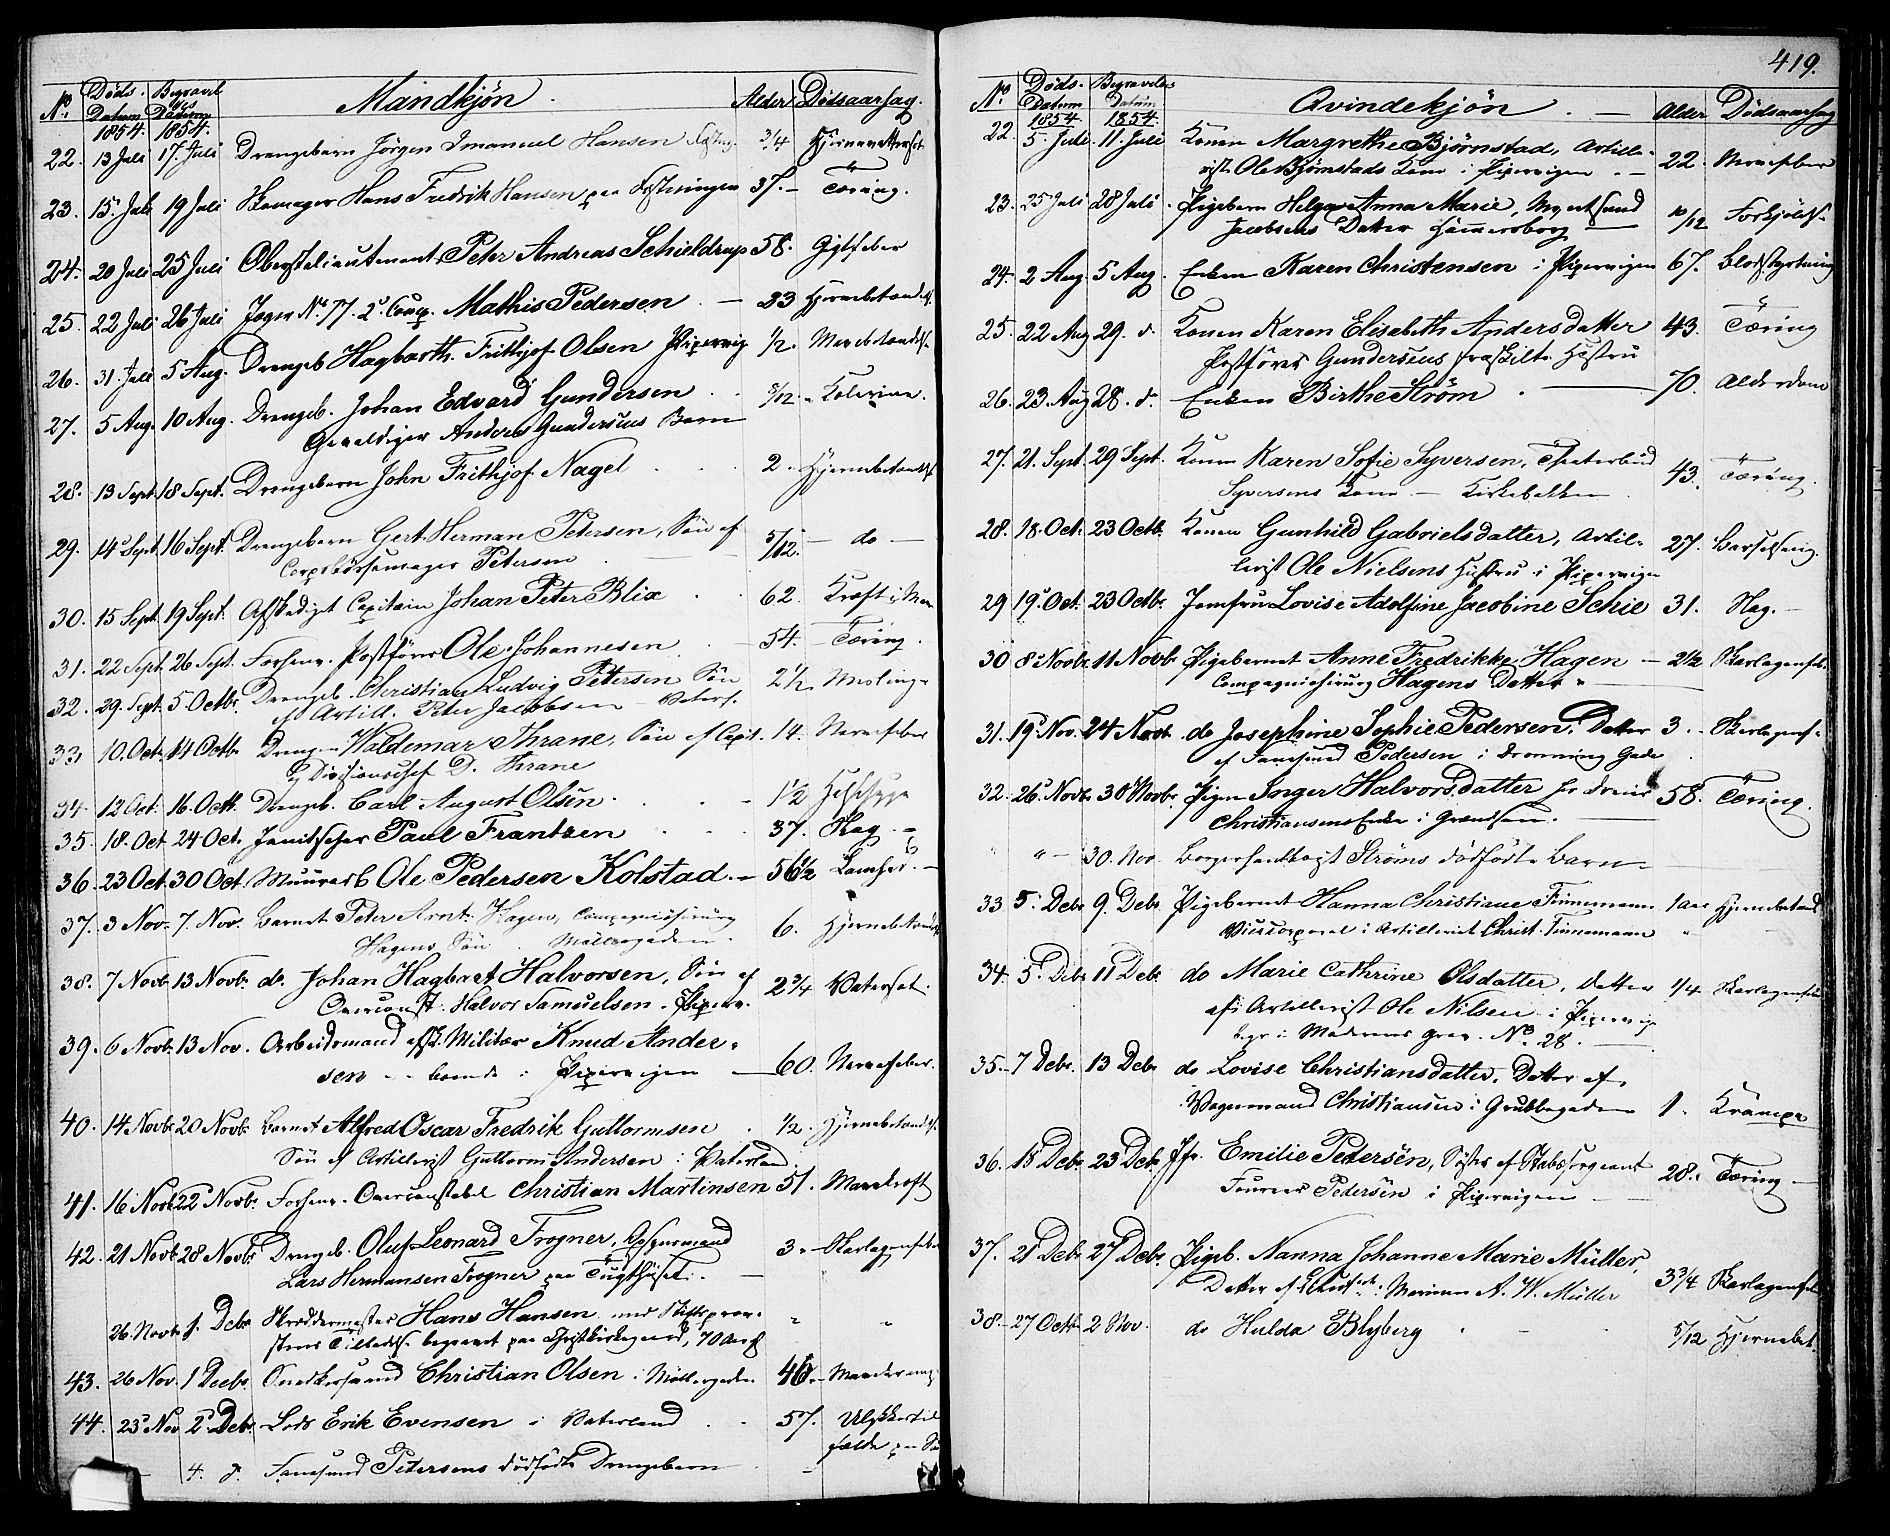 No. Døds- Datum 1854. Begravelses Datum 1854. Mandkjøn. Alder Dødsaarsag.
22. 13 Juli 17. Juli Drengebarn Jörgen Imanuel Hansen 3/4
23. 15. Juli 19 Juli Skomager Hans Fredrik Hansen paa Fæstningen 37. - Tæring.
24. 20 Juli 25 Juli Oberstelieutenant Peter Andreas Schieldrup 58. Gigtfeber
25. 22 Juli 26 Juli Jæger No. 77. 2. Comp. Mathis Pedersen - 23 Hjernebetændels.
26. 31. Juli 5 Aug. Drengeb. Hagbarth Frithjof Olsen Pipervig 1/2.
27. 5 Aug. 10 Aug. Drengeb. Johan Edvard Gundersen 3/12. Kolerine.
Gevaldiger Anders Gundersens Barn
28. 13 Sept. 18 Sept. Drengebarn John Frithjof Nagel 2. Hjernebetændels.
29. 14 Sept. 16 Sept. Drengebarn Gert Herman Petersen, Søn af 5/12. - do -
Corpsbørsemager Petersen
30. 15 Sept. 19 Sept. Afskediget Capitain Johan Peter Blix 62. Kræft i Mav
31. 22 Sept. 26 Sept. Forhenv. Postfører Ole Johannesen 54. - Tæring.
32. 29. Sept. 5. Octbr. Drengeb. Christian Ludvig Petersen Søn 2 1/2 Meslinger
af Artill. Peter Jacobsen - Vaterl.
33, 10. Oct. 14 Octbr. Drengen Waldemar Thrane, Søn af Capt. 14. Nervefeber
og Divisionschef D. Thrane
34. 12 Oct. 16. Octb. Drengeb. Carl August Olsen. 1 1/2
35. 18. Oct 24 Oct. Janitschar Paul Frantzen 37. Slag.
36. 23 Oct. 30 Oct. Muurer Ole Pedersen Kolstad. - 56 1/2 Lamhed. -
37. 3 Nov. 7. Nov. Barnet Peter Arnt Hagen, Compagniechirurg 6. Hjernebetænd.
Hagens Søn. Möllergaden.
38. 7 Novb. 13 Novb. do. Johan Hagbret Halvorsen, Søn af 2 3/4 Vatersot.
Overconst. Halvor Samuelsen. Piperv.
39. 6 Novb. 13 Nov. Arbeidsmand afsk. Militær Knud Ander-
sen - boende i Pipervigen - 60. Nervefeber.
40. 14 Novb. 20 Novb. Barnet Alfred Oscar Fredrik Guttormsen 1/2. Hjernebetændels.
Søn af Artillerist Guttorm Andersen i Vaterland
41. 16 Novb. 22 Novb. Forhenv. Overconstabel Christian Martinsen 51. Mavekræft
42. 21 Novb. 28 Novb. Drengeb. Oluf Leonard Frogner, 3 - Skarlagensfeber
Lars Hermansen Frogner paa Tugthuset. -
26. Novb. 1. Debr Skreddermester Hans Hansen med Stiftsprov-
stens Tilladels. begravet paa Christkirkegaard, 70 Aar gl
43. 26 Nov. 1 Decbr. Snedkersvend Christian Olsen. Möllergaden 46.
44. 23 Nov 2. Debr. Lods Erik Evensen i Vaterland 57. Ulykkestil
fælde paa Sö
4. d. Farvesvend Petersens dödfödte Drengebarn

419.
No. Døds- Datum 1854. Begravelses Datum 1854. Qvindekjøn. - Alder Dødsaarsag
22. 5. Juli 11. Juli Konen Margrethe Bjørnstad, Artille-
rist Ole Bjørnstads Kone i Pipervigen - 22. Nervefeber
23. 25 Juli 28 Juli. Pigebarn Helga Anna Marie,
Jacobsens Datter Hammersborg 10/12 Forkjølels.
24. 2 Aug. 5 Aug. Enken Karen Christensen i Pipervigen 67. Blodstyrtning
25. 22 Aug 29. d. Konen Karen Elisabeth Andersdatter 43. Tæring
Postförer Gundersens fraskilte Hustru
26. 23. Aug 28. d. Enken Birthe Strøm 70. Alderdom
27. 21. Sept. 29 Sept. Konen Karen Sofie Syversen, Theaterbud 43. Tæring.
Syversens Kone - Kirkebakken
28. 18. Oct. 23 Octb. Konen Gunhild Gabrielsdatter, Artil-
lerist Ole Nielsens Hustru i Pipervigen 27. Barselseng.
29 19. Oct. 23 Octbr. Jomfru Lovise Adolfine Jacobine Schie 31. Slag. -
30 8. Novbr. 11 Novb. Pigebarnet Anne Fredrikke Hagen - 2 1/2 Skarlagensfb.
Compagniechirurg Hagens Datter
31. 19. Nov. 24 Novb. do Josephine Sophie Pedersen. Datter 3. - Skarlagensf.
af Farvesvend Pedersen i Dronning Gade
32. 26. Novb. 30 Novb. Pigen Inger Halvorsdatter hos 58. Tæring.
Christiansens Enke i Grændsen.
" " - 30. Nov. Borgerfuldmægt Strøms dödfödte Barn
33 5. Debr 9. Debr. Pigebarnet Hanna Christiane Finnemann 1 aar Hjernebetænd.
Vicecorporal i Artilleriet Christ. Finnemann
34. 5. Debr 11 Debr do Marie Cathrine Olsdatter, Datter 1/4 Skarlagensfeber
af Artillerist Ole Nilsen i Pipervig
begr. i Moderens Grav. No. 28.
35. 7 Debr. 13 Debr do Lovise Christiansdatter. Datter af
Vognmand Christiansen i Grubbegaden 1. Krampe
36. 18 Debr. 23 Debr Jfr. Emilie Pedersen, Søster af Stabssergeant
Fourer Pedersen i Pipervigen 28. Tæring -
37. 21 Debr. 27 Debr. Pigeb. Nanna Johanne Marie Müller,
Datter af i Marinen A. W. Müller 3 3/4 Skarlagensfe
38. - 27 Octb. 2 Nov. do Hulda Blyberg 5/12 Hjernebet.